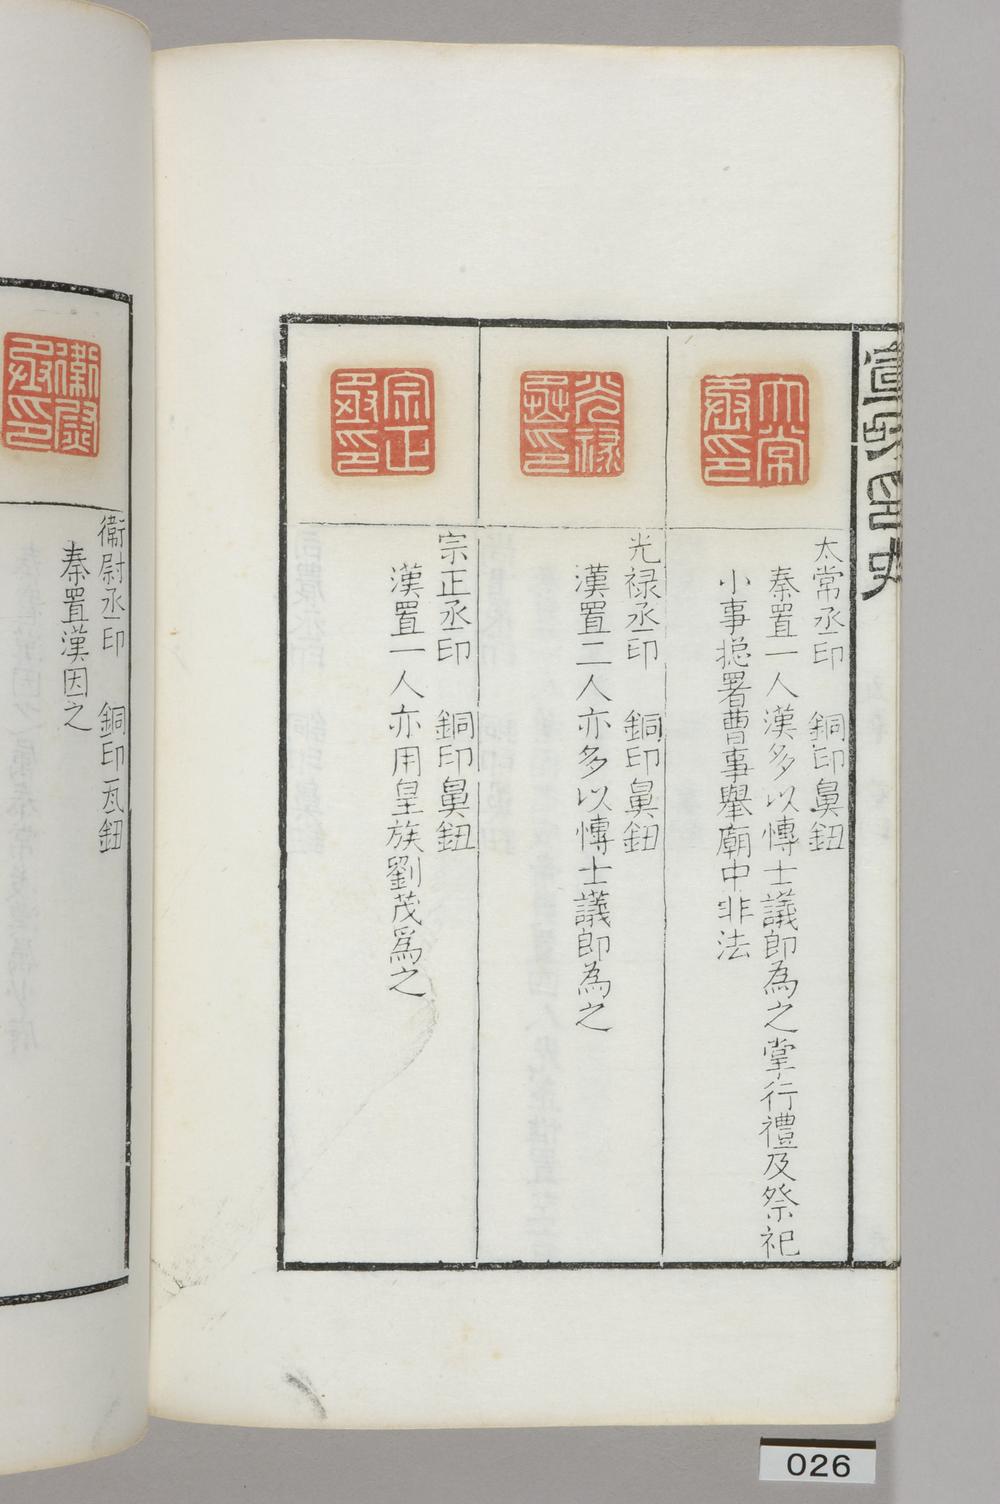 宣和印史
太常丞印
太常丞印 銅印鼻鈕
秦置一人漢多以博士議郎為之掌行禮及祭祀
小事揔署曹事舉廟中非法
光禄丞印
光禄丞印 銅印鼻鈕
漢置二人亦多以博士議郎為之
宗正丞印
宗正丞印 銅印鼻鈕
漢置一人亦用皇族劉茂爲之
衞尉丞印
衞尉丞印 銅印瓦鈕
秦置漢因之
026